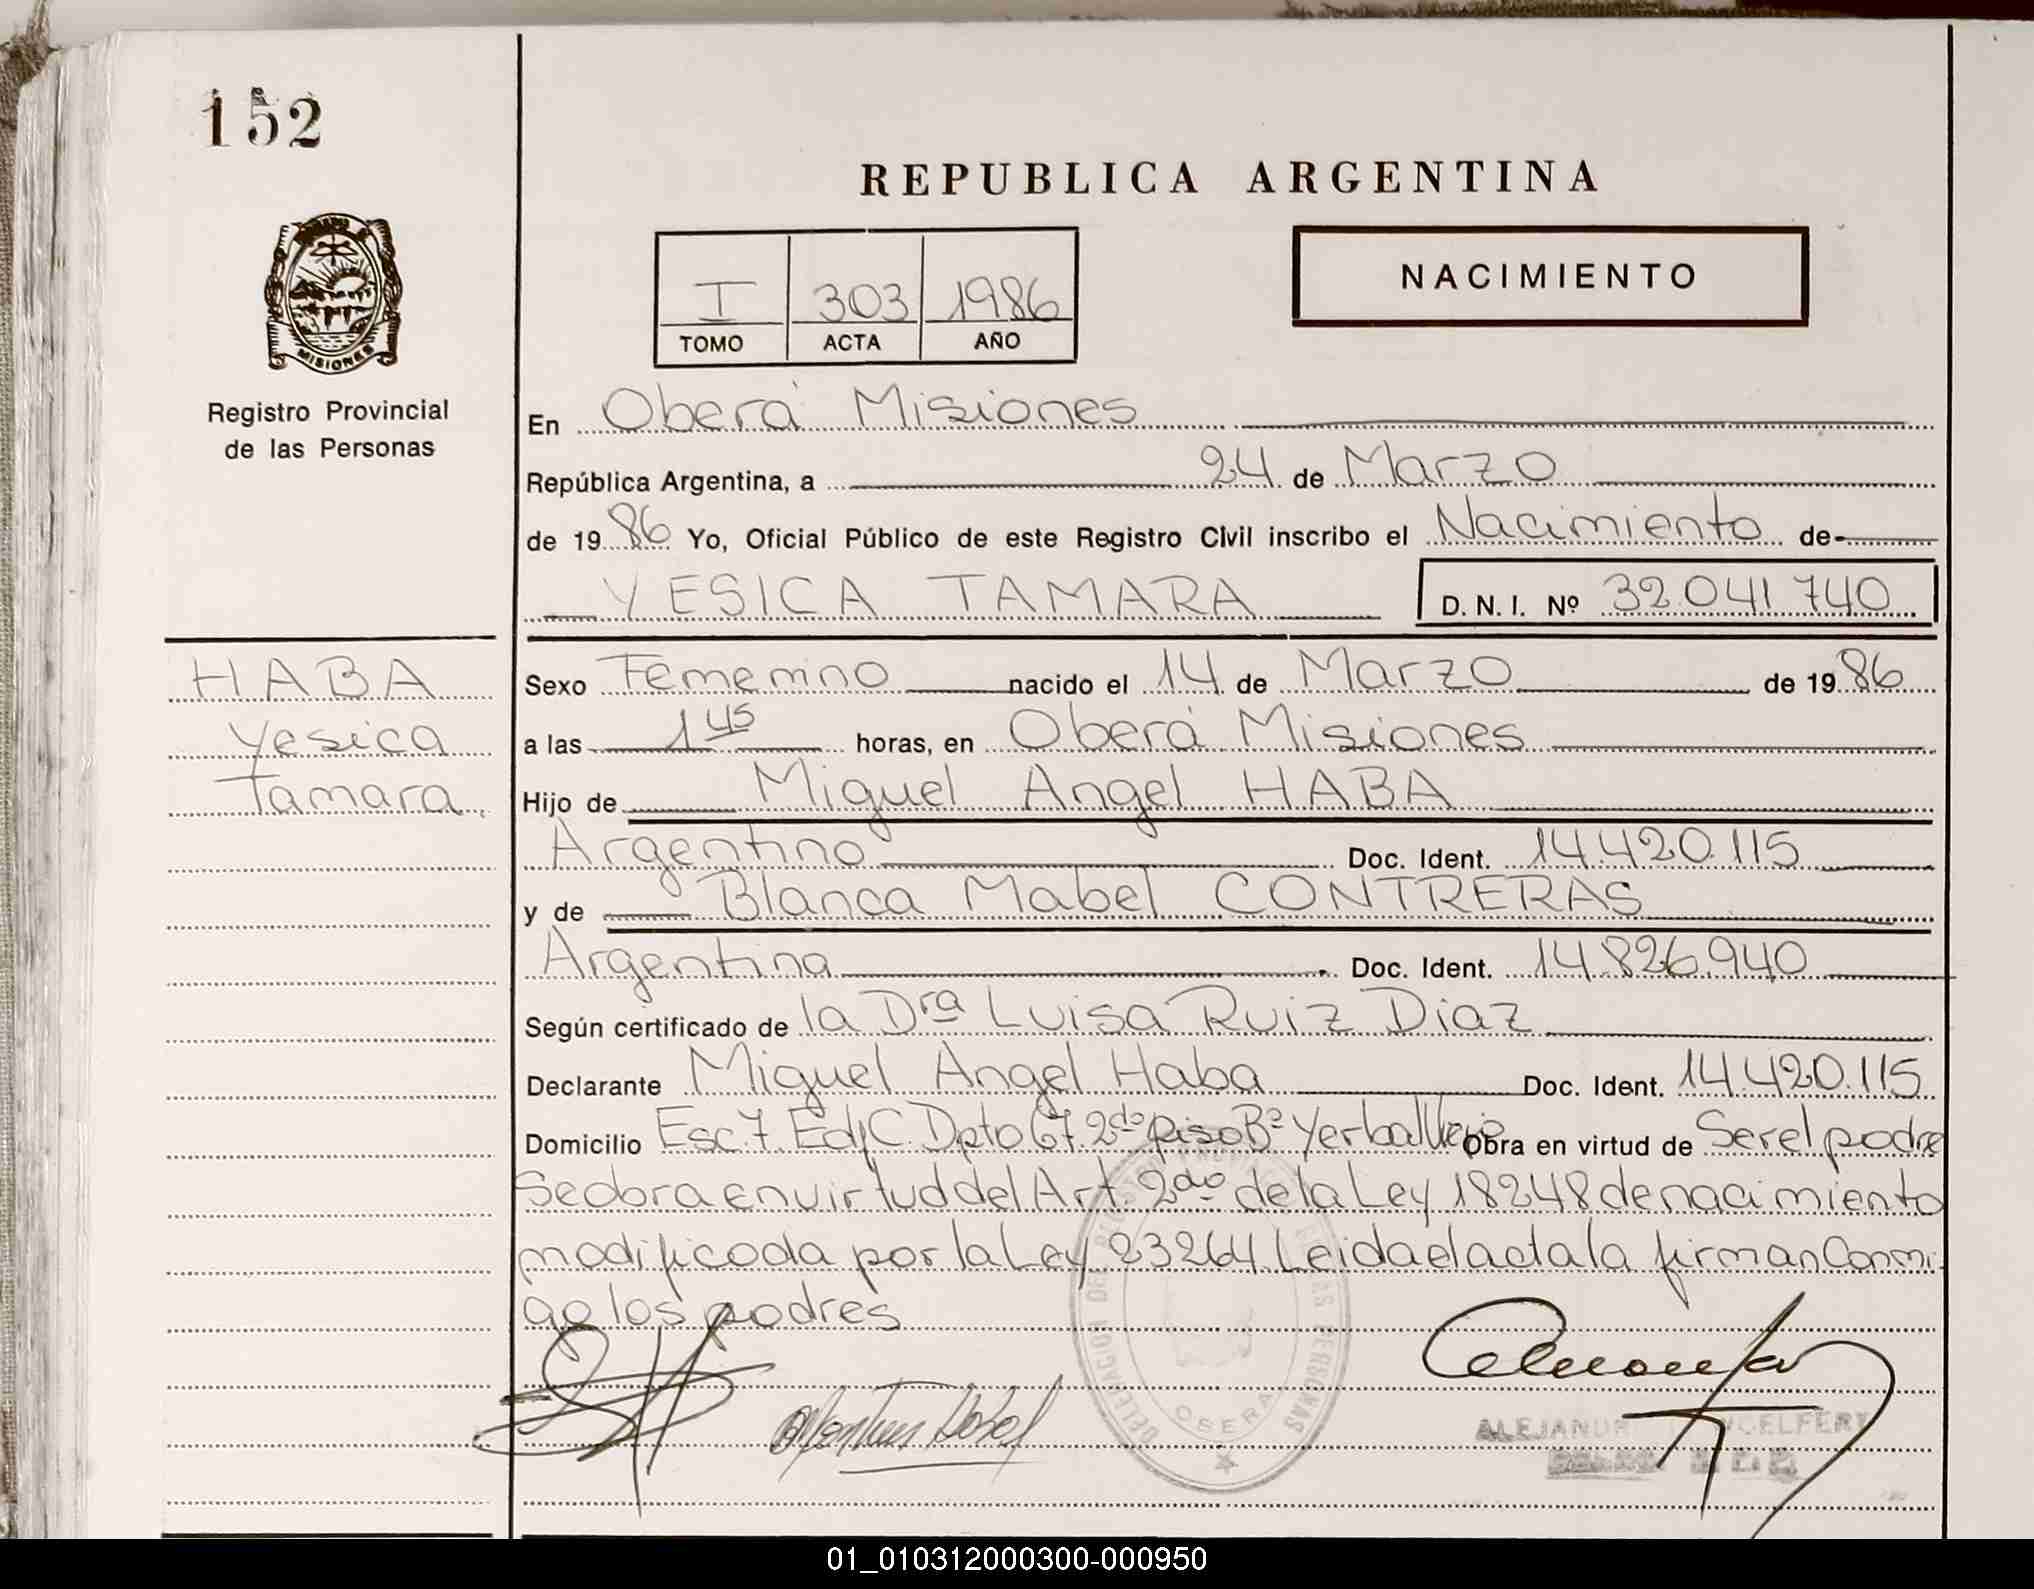 152
REPUBLICA ARGENTINA
MISIONES
Registro Provincial
de las Personas
I 303 1986
TOMO ACTA AÑO
NACIMIENTO
En Oberá Misiones
República Argentina, a 24 de Marzo
de 1986 Yo, Oficial Público de este Registro Civil inscribo el Nacimiento de
YESICA TAMARA D.N.I. Nº 32.041.740
HABA
Yesica
Tamara
Sexo Femenino nacido el 14 de Marzo de 1986
a las 1 45 horas, en Oberá Misiones
Hijo de Miguel Angel HABA
Argentino Doc. Ident. 14.420.115
y de Blanca Mabel CONTRERAS
Argentina Doc. Ident. 14.826.940
Según certificado de la Dra Luisa Ruiz Diaz
Declarante Miguel Angel Haba Doc. Ident. 14.420.115
Domicilio Esc. 7. Edif C. Dpto 67. 2do piso Bº Yerbal Viejo Obra en virtud de Ser el padre
Se obra en virtud del Art. 2do de la Ley 18248 de nacimiento
modificada por la Ley 23264 Leida el acta la firman Conmi-
go los padres
DELEGACION DEL REGISTRO PROVINCIAL DE LAS PERSONAS
OBERA
01_010312000300-000950